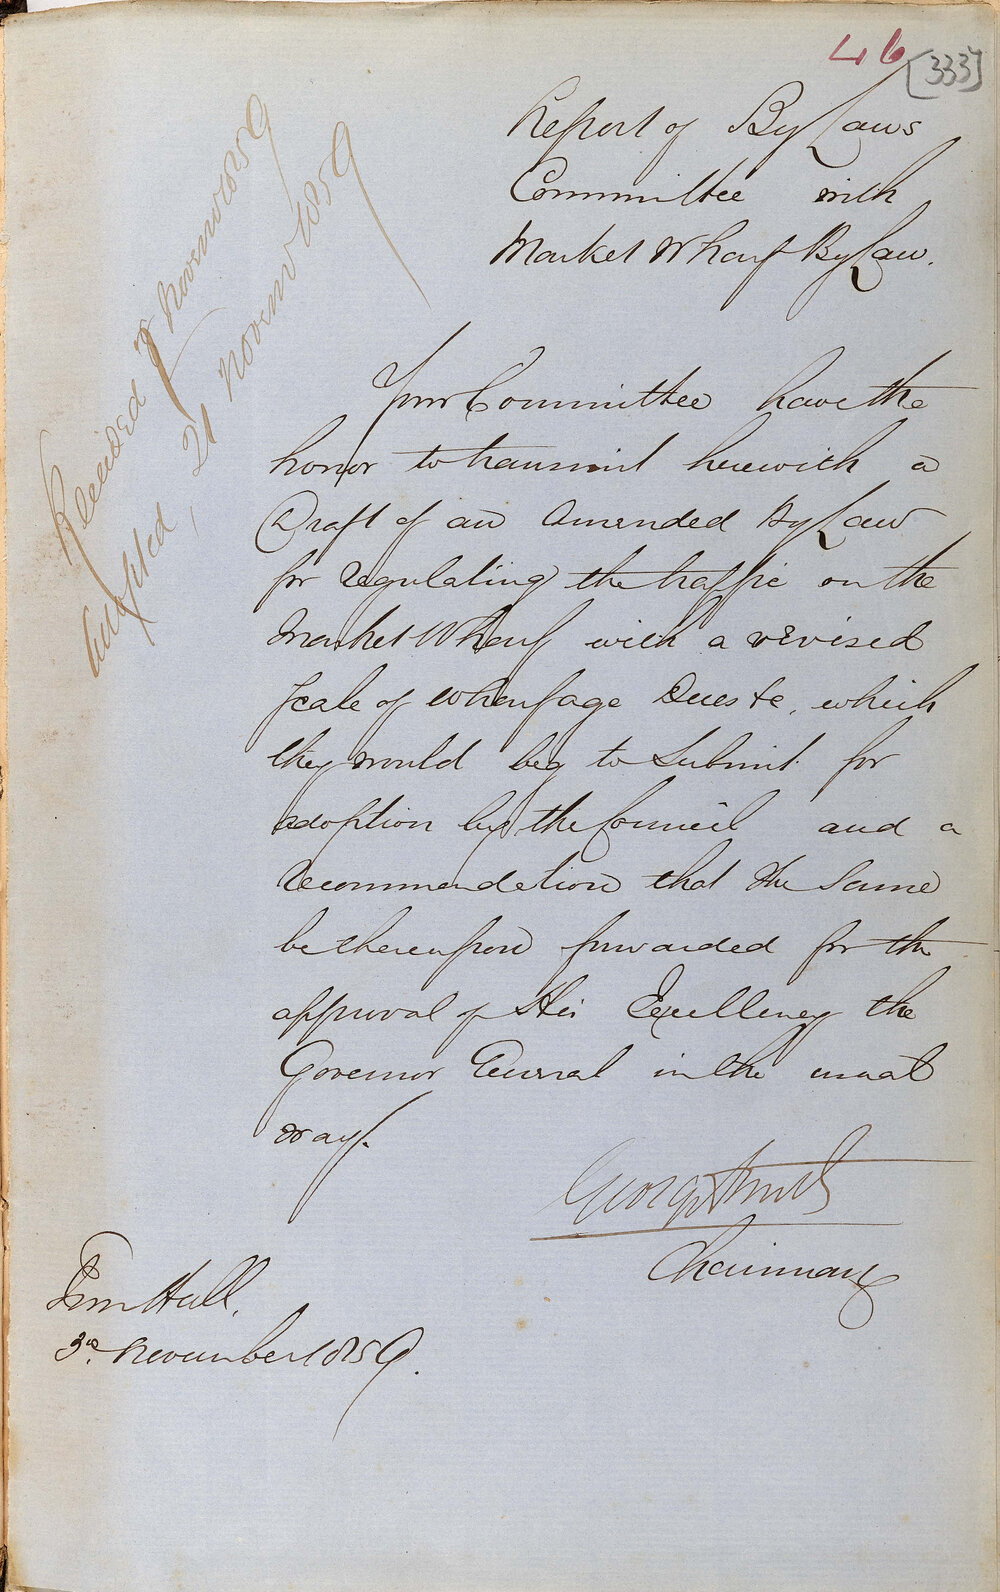 46
[333]
Report of By Laws
Committee with
Market Wharf By Law.
Received 7 November 1859
Adopted 21 November 1859
Your Committee have the
honor to transmit herewith a
Draft of an Amended By Law
for regulating the traffic on the
Market Wharf with a revised
Scale of Wharfage Dues &c, which
they would beg to Submit for
adoption by the Council and a
recommendation that the Same
be thereupon forwarded for the
approval of His Excellency the
Governor General in the usual
way.
George Smith
Chairman
Town Hall.
3rd November 1859.